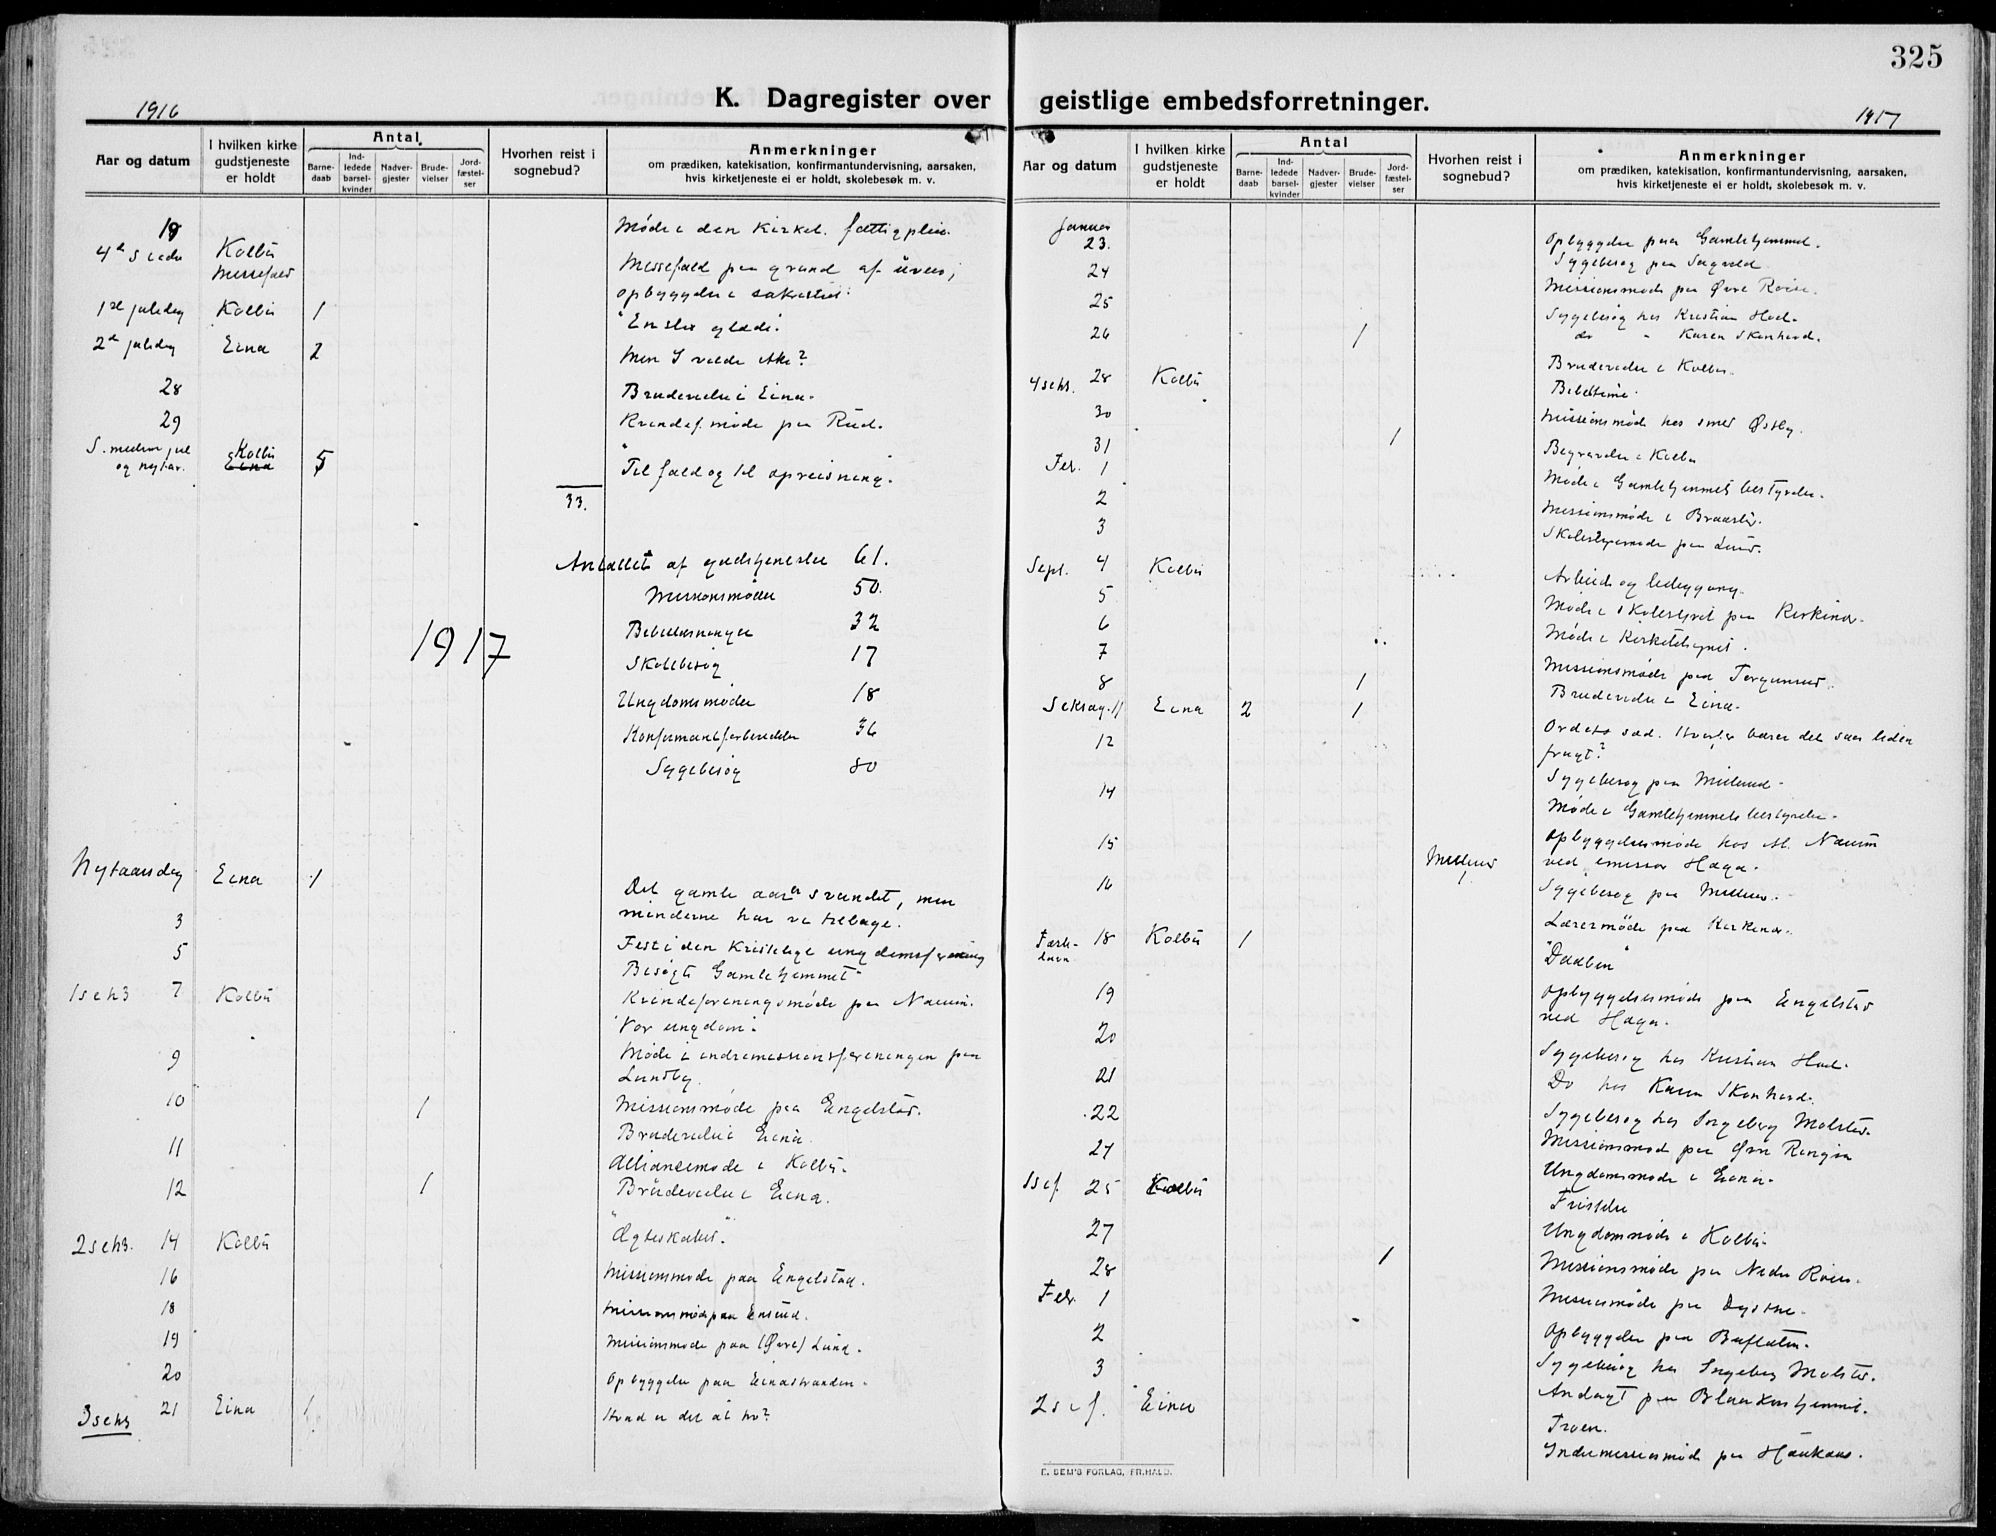 325
K. Dagregister over geistlige embedsforretninger.
1916
1917
Aar og datum
I hvilken kirke gudstjeneste er holdt
Antal
Barne-daab
Ind-ledede barsel-kvinder
Nadver-gjester
Brude-vielser
Jord-fæstel-ser
Hvorhen reist i sognebud?
Anmerkninger
om prædiken, katekisation, konfirmantundervisning, aarsaken,
hvis kirketjeneste ei er holdt, skolebesøk m. v.
Møde i den kirkel. fattigpleie.
4de S i adv Kolbu
Messefald
Messefald paa grund af uveir;
opbyggelse i sakristiet.
1ste juledag Kolbu 1
"En stor glæde".
2den juledag Eina 2
Men I vilde ikke?
28 Brudevielse i Eina.
29 Kvindef. møde paa Rud.
S. mellem jul og nytaar. Kolbu 5
"Til fald og til opreisning".
33.
Antallet af gudstjenester 61.
Missionsmøder 50.
Bibellæsninger 32
1917
Skolebesøg 17
Ungdomsmøder 18
Konfirmantforberedelse 36
Sygebesøg 80
Nytaarsdag Eina 1
Det gamle aar er svundet, men
minderne har vi tilbage.
3 Fest i den kristelige ungdomsforening
5 Besøgt Gamlehjemmet
1 s e h 3 7 Kolbu
Kvindeforeningsmøde paa Narum.
"Vor ungdom".
9 Møde i indremissionsforeningen paa
Lundby.
10 1 Missionsmøde paa Engelstad.
Brudevielse i Eina.
11 Alliancemøde i Kolbu.
12 1 Brudevielse i Eina.
2 s e h 3. 14 Kolbu "Ægteskabet".
16 Missionsmøde paa Engelstad.
18 Missionsmøde paa Ensrud.
19 Missionsmøde paa (Øvre) Lund.
20 Opbyggelse paa Einastranden.
3 s e h 3 21 Eina 1 Hvad er det at tro?
Aar og datum
I hvilken kirke gudstjeneste er holdt
Antal
Barne-daab
Ind-ledede barsel-kvinder
Nadver-gjester
Brude-vielser
Jord-fæstel-ser
Hvorhen reist i sognebud?
Anmerkninger
om prædiken, katekisation, konfirmantundervisning, aarsaken,
hvis kirketjeneste ei er holdt, skolebesøk m. v.
Januar
23. Opbyggelse paa Gamlehjemmet.
24 Sygebesøg paa
Missionsmøde paa Øvre Roise.
25 Sygebesøg hos Kristian Hoel.
26 1 do " Karen Skonhard.
Brudevielse i Kolbu.
4 s e h 3. 28 Kolbu
Bibeltime.
30 Missionsmøde hos smed Østby.
31 1 Begravelse i Kolbu
Feb. 1 Møde i Gamlehjemmets bestyrelse.
2 Missionsmøde i
3 Skolestyremøde paa Lund.
Sept. 4 Kolbu Arbeid og lediggang.
5 Møde i skolestyret paa Kirkenær.
6 Møde i Kirketilsynet.
7 Missionsmøde paa
8 1 Brudevielse i Eina.
Seksag. 11 Eina 2 1
12 Ordets sæd. Hvorfor bærer det saa liden
frugt?
Sygebesøg paa
14 Møde i Gamlehjemmets bestyrelse.
15 Opbyggelsesmøde hos M. Narum
ved emissær Haga.
16 Sygebesøg paa
Lærermøde paa Kirkenær.
18 Kolbu 1 "Daaben"
19 Opbyggelsesmøde paa Engelstad
ved Haga.
20 Sygebesøg hos Kristian Hoel.
21 Do hos Karen Skonhard.
22 Sygebesøg hos Ingeborg Molstad.
24 Missionsmøde paa Øvre
Ungdomsmøde i Eina.
1 s i f. 25 Kolbu Fristelse
27 Ungdomsmøde i Kolbu.
28 1 Missionsmøde paa Nedre Roise.
Feb. 1 Missionsmøde paa Dyste.
2 Opbyggelse paa
3 Sygebesøg hos Ingeborg Molstad.
Andagt paa Blaakorshjemmet.
2 s i f. Eina Troen.
Indremissionsmøde paa
E. SEM'S FORLAG, FR.HALD.